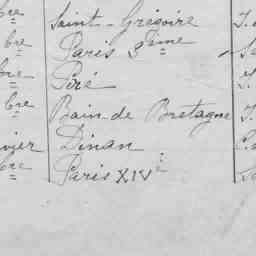 bre Saint-Grégoire
bre Paris 8ème
bre Piré
bre Bain-de Bretagne
vier Dinan
bre Paris XIVe